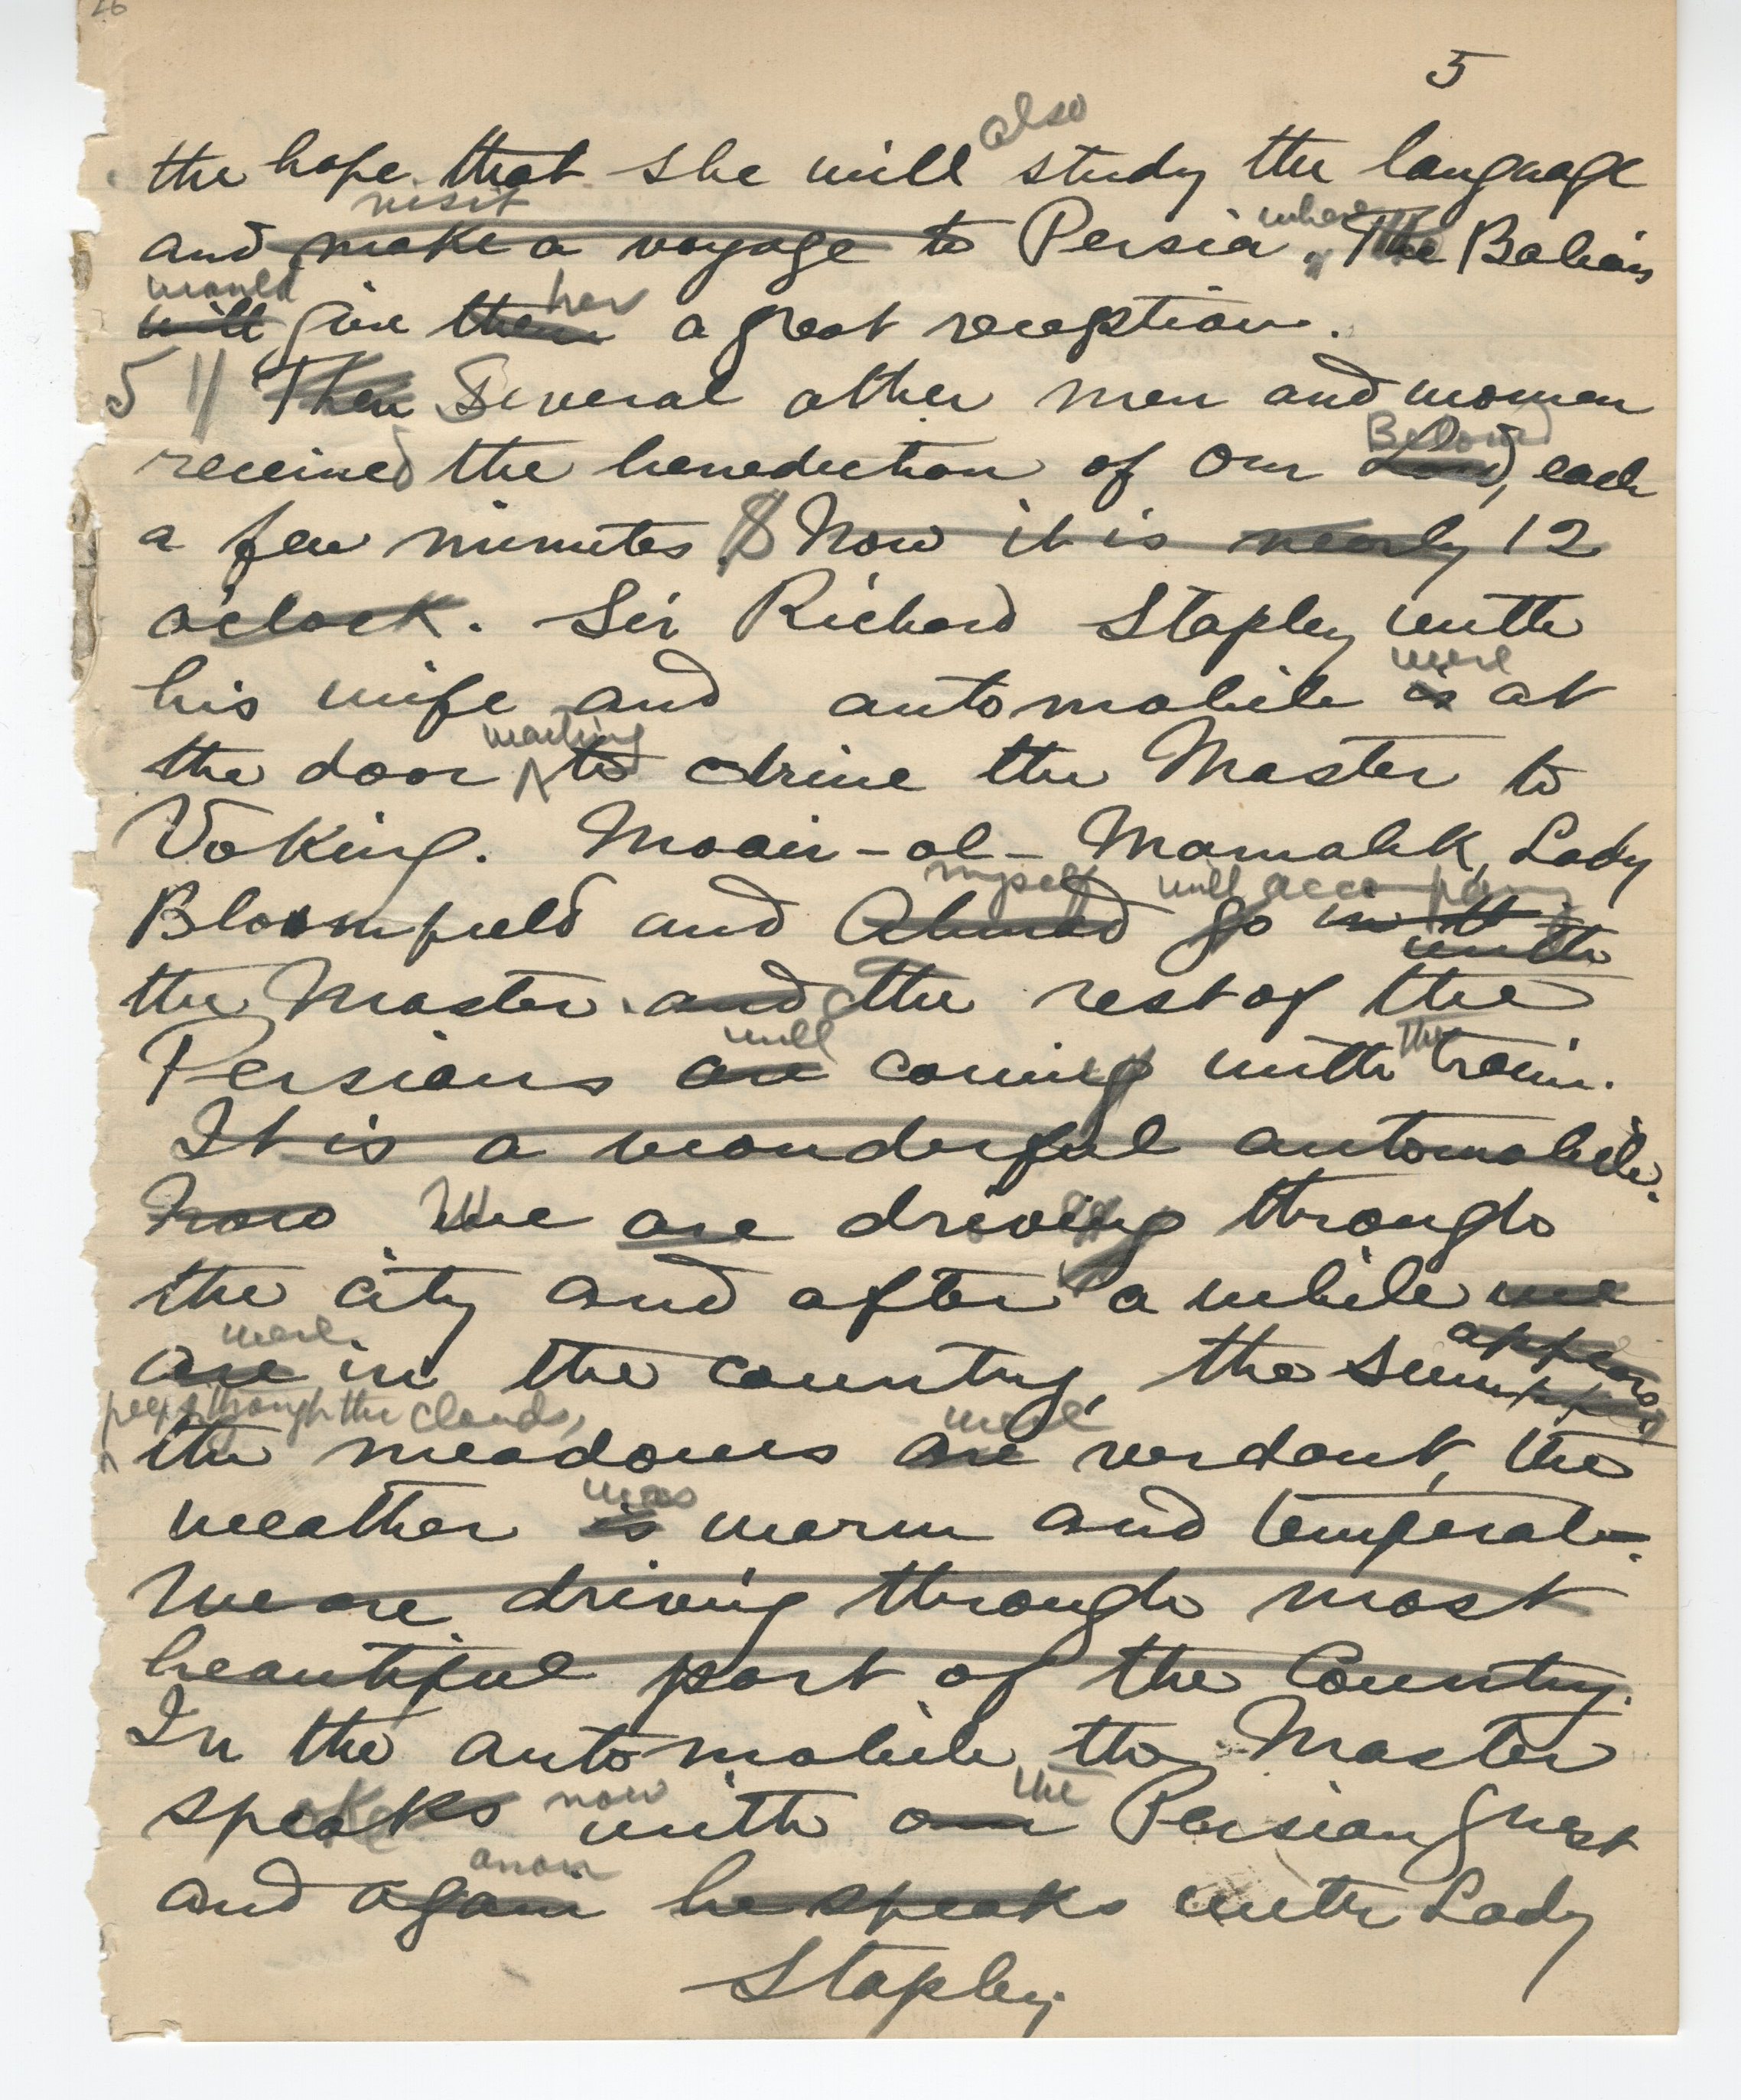 26
5
also
the hope that she will study the language
visit
and make a voyage to Persia, where The Bahais
would her
will give them a great reception.
5 // Then Several other men and women
Beloved
received the benediction of our Lord, each
a few minutes. Now it is nearly 12
o'clock. Sir Richard Stapley with
were
his wife and automobile is at
waiting
the door to drive the Master to
Voking. Moair-ol-Mamalek, Lady
myself will accompany
Bloomfield and Ahmad go with
with
the Master. and the rest of the
will the
Persians are coming with train.
It is a wonderful automobile.
Now We are driving through
the city and after a while we
were appears
are in the country, the sun
peeps through the clouds, were
the meadows are verdant, the
was
weather is warm and temperate.
We are driving through most
beautiful part of the Country.
In the automobile the Master
oke now the
speaks with our Persian guest
anon
and again he speaks with Lady
Stapley